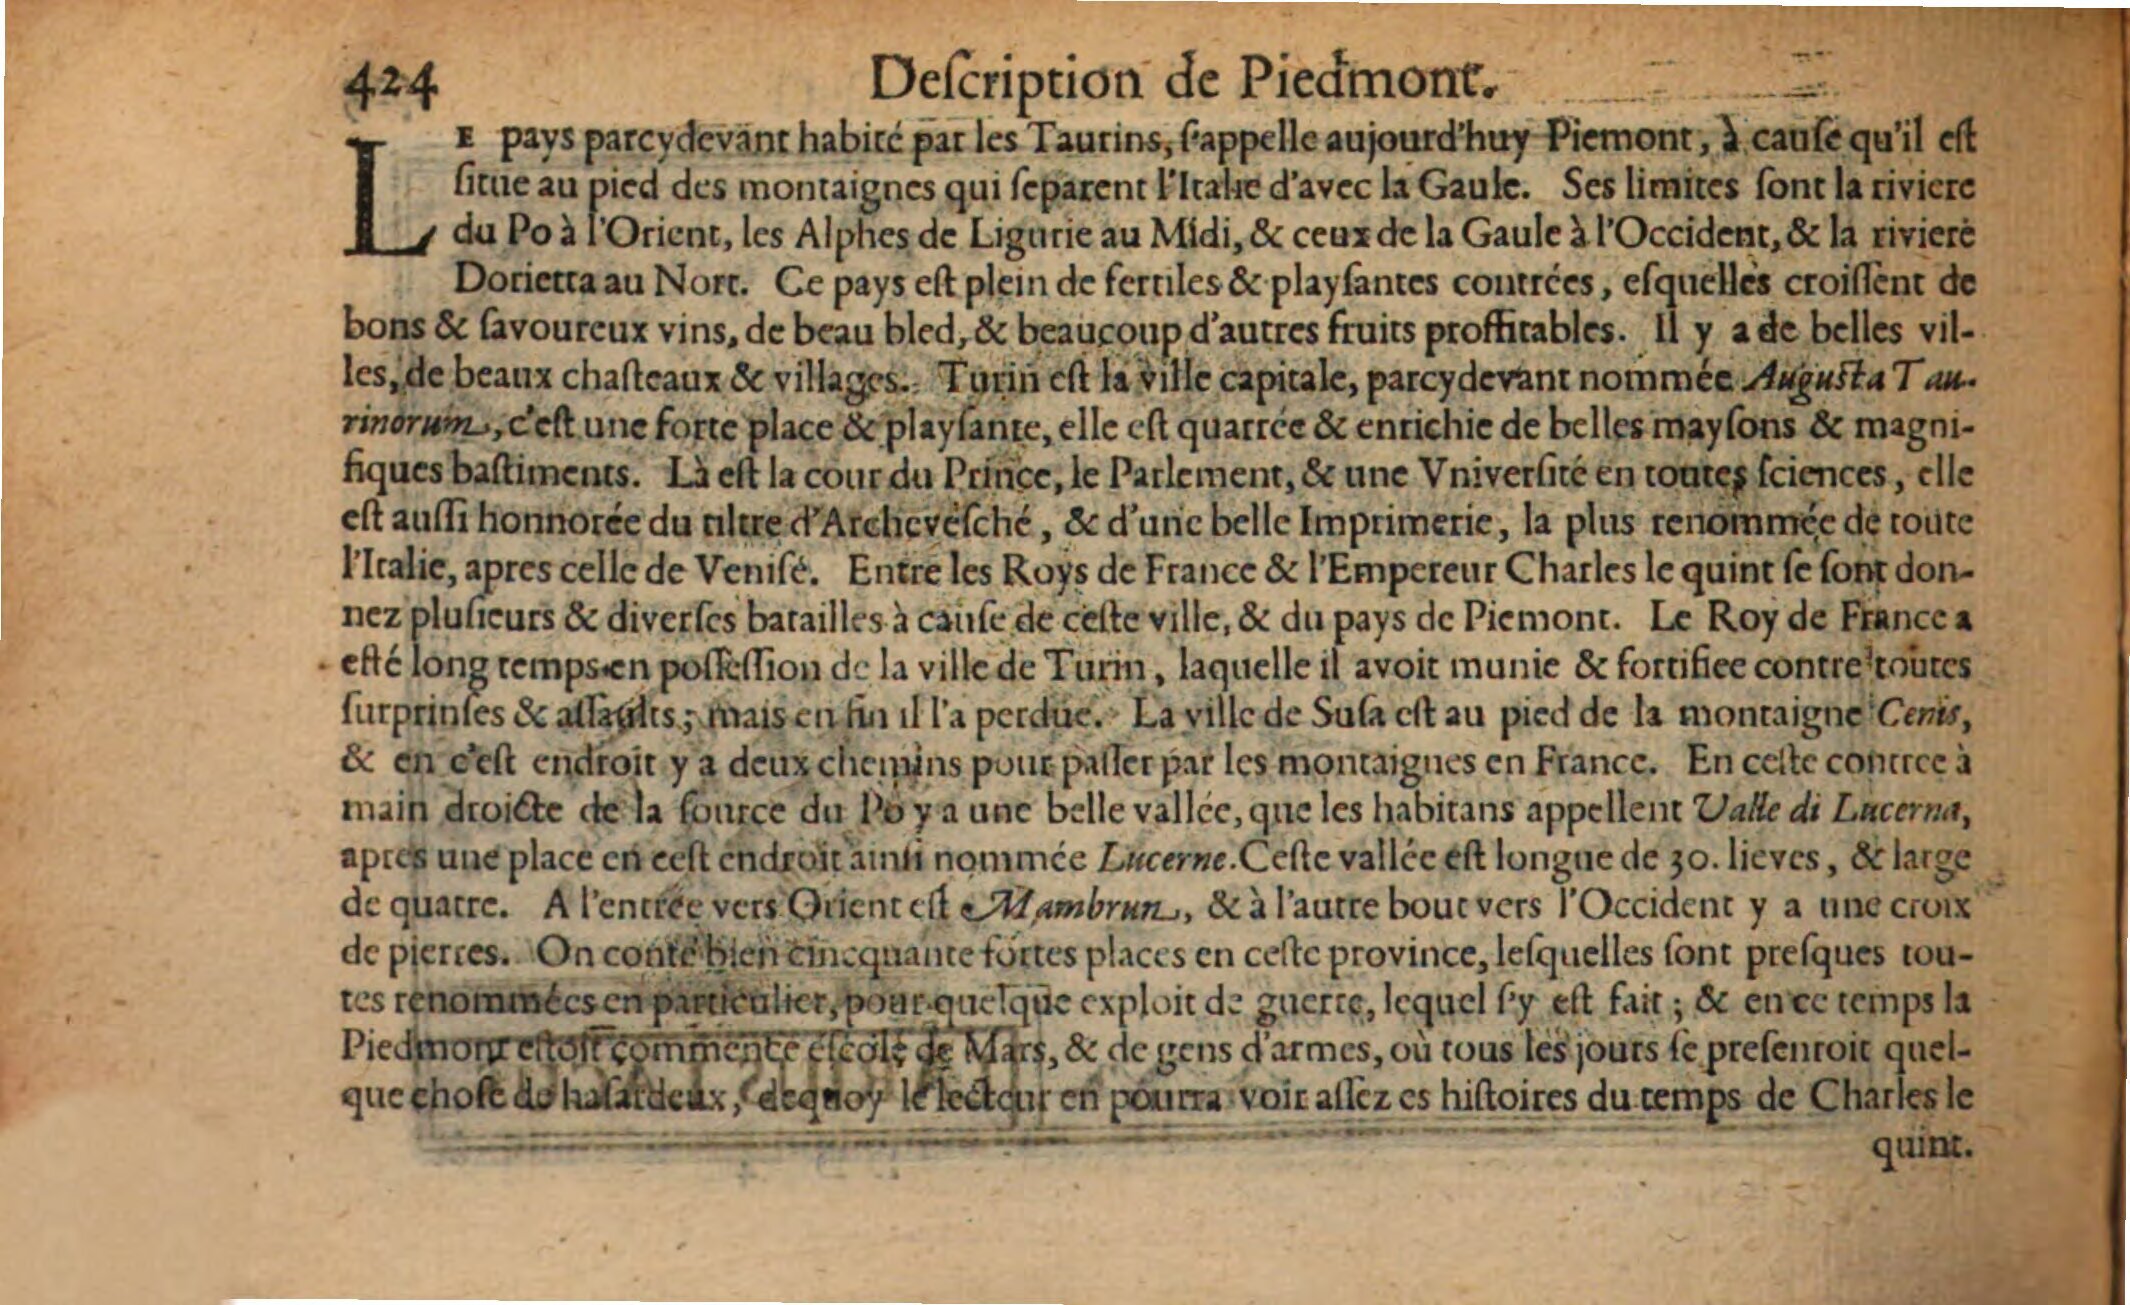 424 Deſcription de Piedmont.
LE pays parcydevant habité par les Taurins, ſ'appelle aujourd'huy Piemont, à cauſe qu'il eſt
ſitue au pied des montaignes qui ſeparent l'Italie d'avec la Gaule. Ses limites ſont la riviere
du Po à l'Orient, les Alphes de Ligurie au Midi, & ceux de la Gaule à l'Occident, & la riviere
Dorietta au Nort. Ce pays eſt plein de fertiles & playſantes contrées, eſquelles croiſſent de
bons & ſavoureux vins, de beau bled, & beaucoup d'autres fruits proffitables. Il y a de belles vil-
les, de beaux chaſteaux & villages. Turin eſt la ville capitale, parcydevant nommée Auguſta Tau-
rinorum, c'eſt une forte place & playſante, elle eſt quarrée & enrichie de belles mayſons & magni-
fiques baſtiments. Là eſt la cour du Prince, le Parlement, & une Vniverſité en toutes ſciences, elle
eſt auſſi honnorée du tiltre d'Archeveſché, & d'une belle Imprimerie, la plus renommée de toute
l'Italie, apres celle de Veniſe. Entre les Roys de France & l'Empereur Charles le quint ſe ſont don-
nez pluſieurs & diverſes batailles à cauſe de ceſte ville, & du pays de Piemont. Le Roy de France a
eſté long temps en poſſeſſion de la ville de Turin, laquelle il avoit munie & fortifiee contre toutes
ſurprinſes & aſſaults; mais en fin il l'a perdue. La ville de Suſa eſt au pied de la montaigne Cenis,
& en c'eſt endroit y a deux chemins pour paſſer par les montaignes en France. En ceſte contree à
main droicte de la ſource du Po y a une belle vallée, que les habitans appellent Valle di Lucerna,
apres une place en ceſt endroit ainſi nommée Lucerne. Ceſte vallée eſt longue de 30. lieves, & large
de quatre. A l'entrée vers Orient eſt Mambrun, & à l'autre bout vers l'Occident y a une croix
de pierres. On conte bien cincquante fortes places en ceſte province, leſquelles ſont preſques tou-
tes renommées en particulier, pour quelque exploit de guerre, lequel ſ'y eſt fait; & en ce temps la
Piedmont eſtoit comme ﻿une eſcole de Mars, & de gens d'armes, où tous les jours ſe preſentoit quel-
que choſe de haſardeux, dequoy le lecteur en pourra voir aſſez es hiſtoires du temps de Charles le
quint.